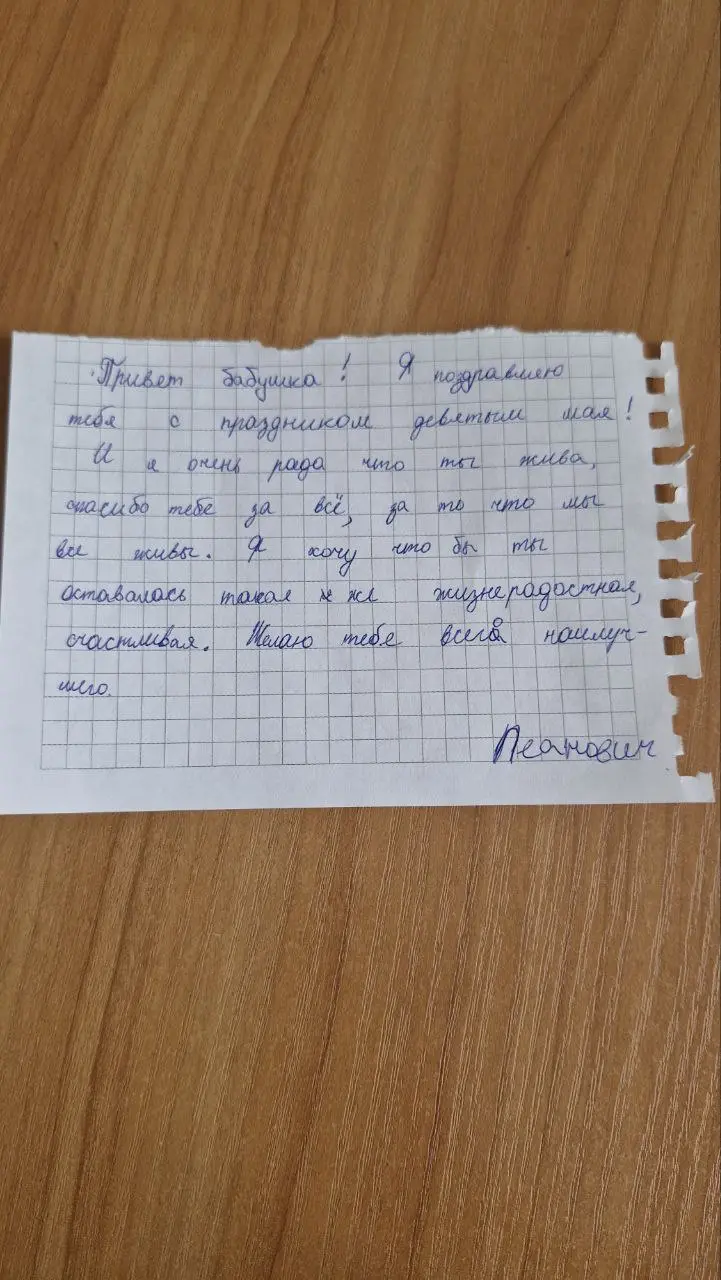 Привет бабушка! Я поздравляю
тебя с праздником девятым мая!
И я очень рада что ты жива,
спасибо тебе за всё, за то что мы
все живы. Я хочу что бы ты
оставалась такая же жизнерадостная,
счастливая. Желаю тебе всего наилуч-
шего.